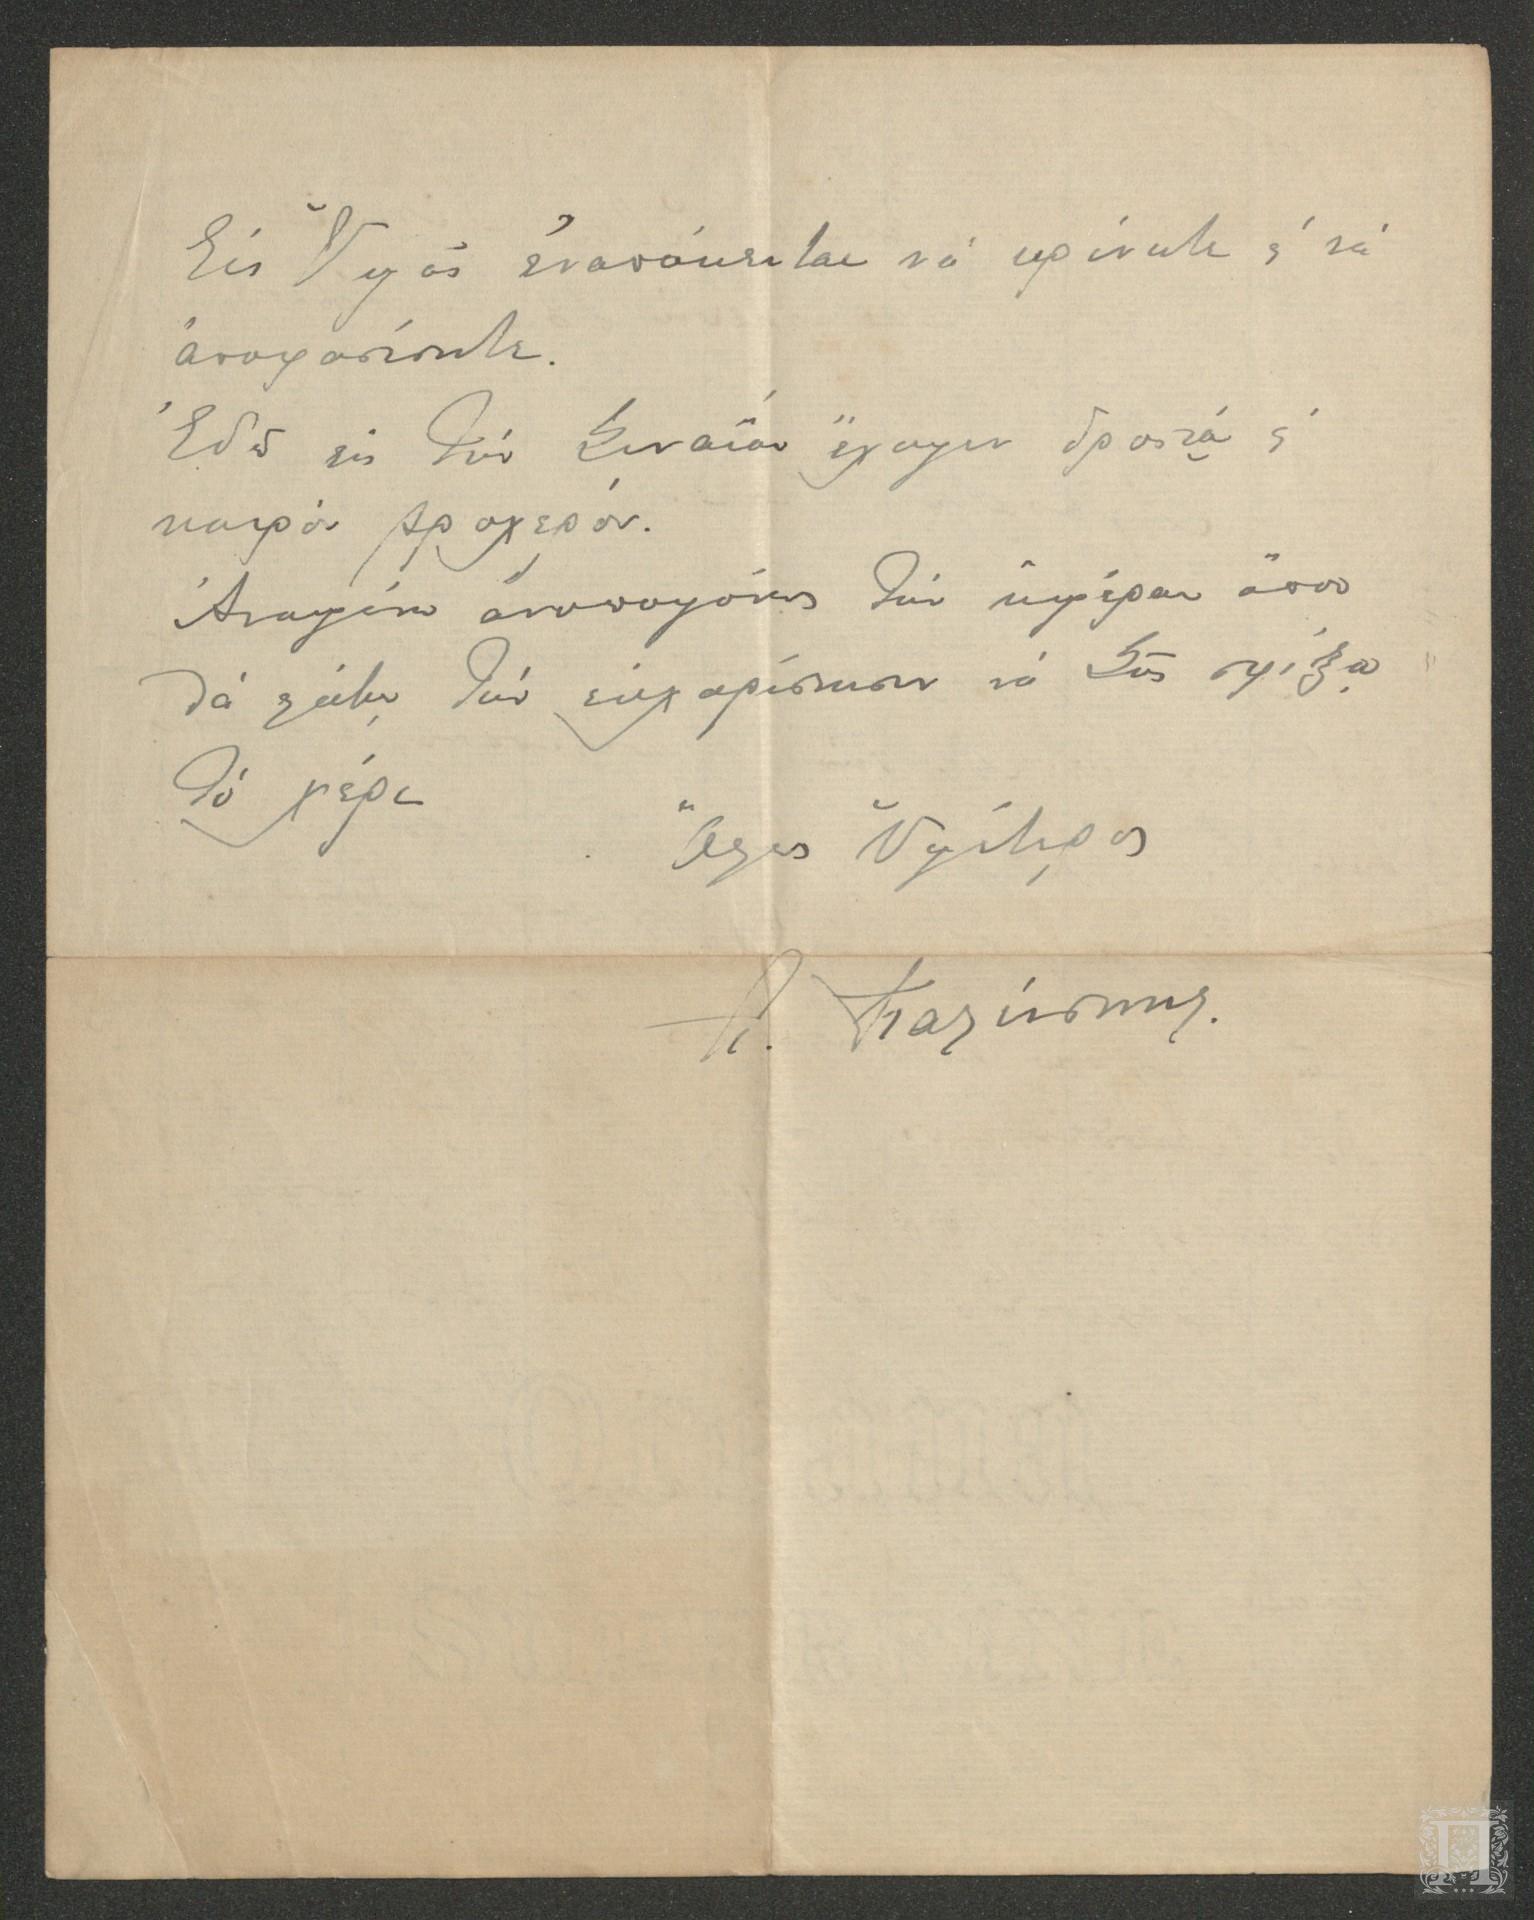 Εἰς Ὑμᾶς ἐναπόκειται νὰ κρίνητε ϗ νὰ
ἀποφασίσητε.
Ἐδῶ εἰς τὴν Σιναΐαν ἔχομεν δροσιὰ ϗ
καιρὸν βροχερόν.
Ἀναμένω ἀνυπομόνως τὴν ἡμέραν ὅπου
θὰ λάβω τὴν εὐχαρίστησιν νὰ Σᾶς σφίξω
τὸ χέρι
Ὅλως Ὑμέτερος